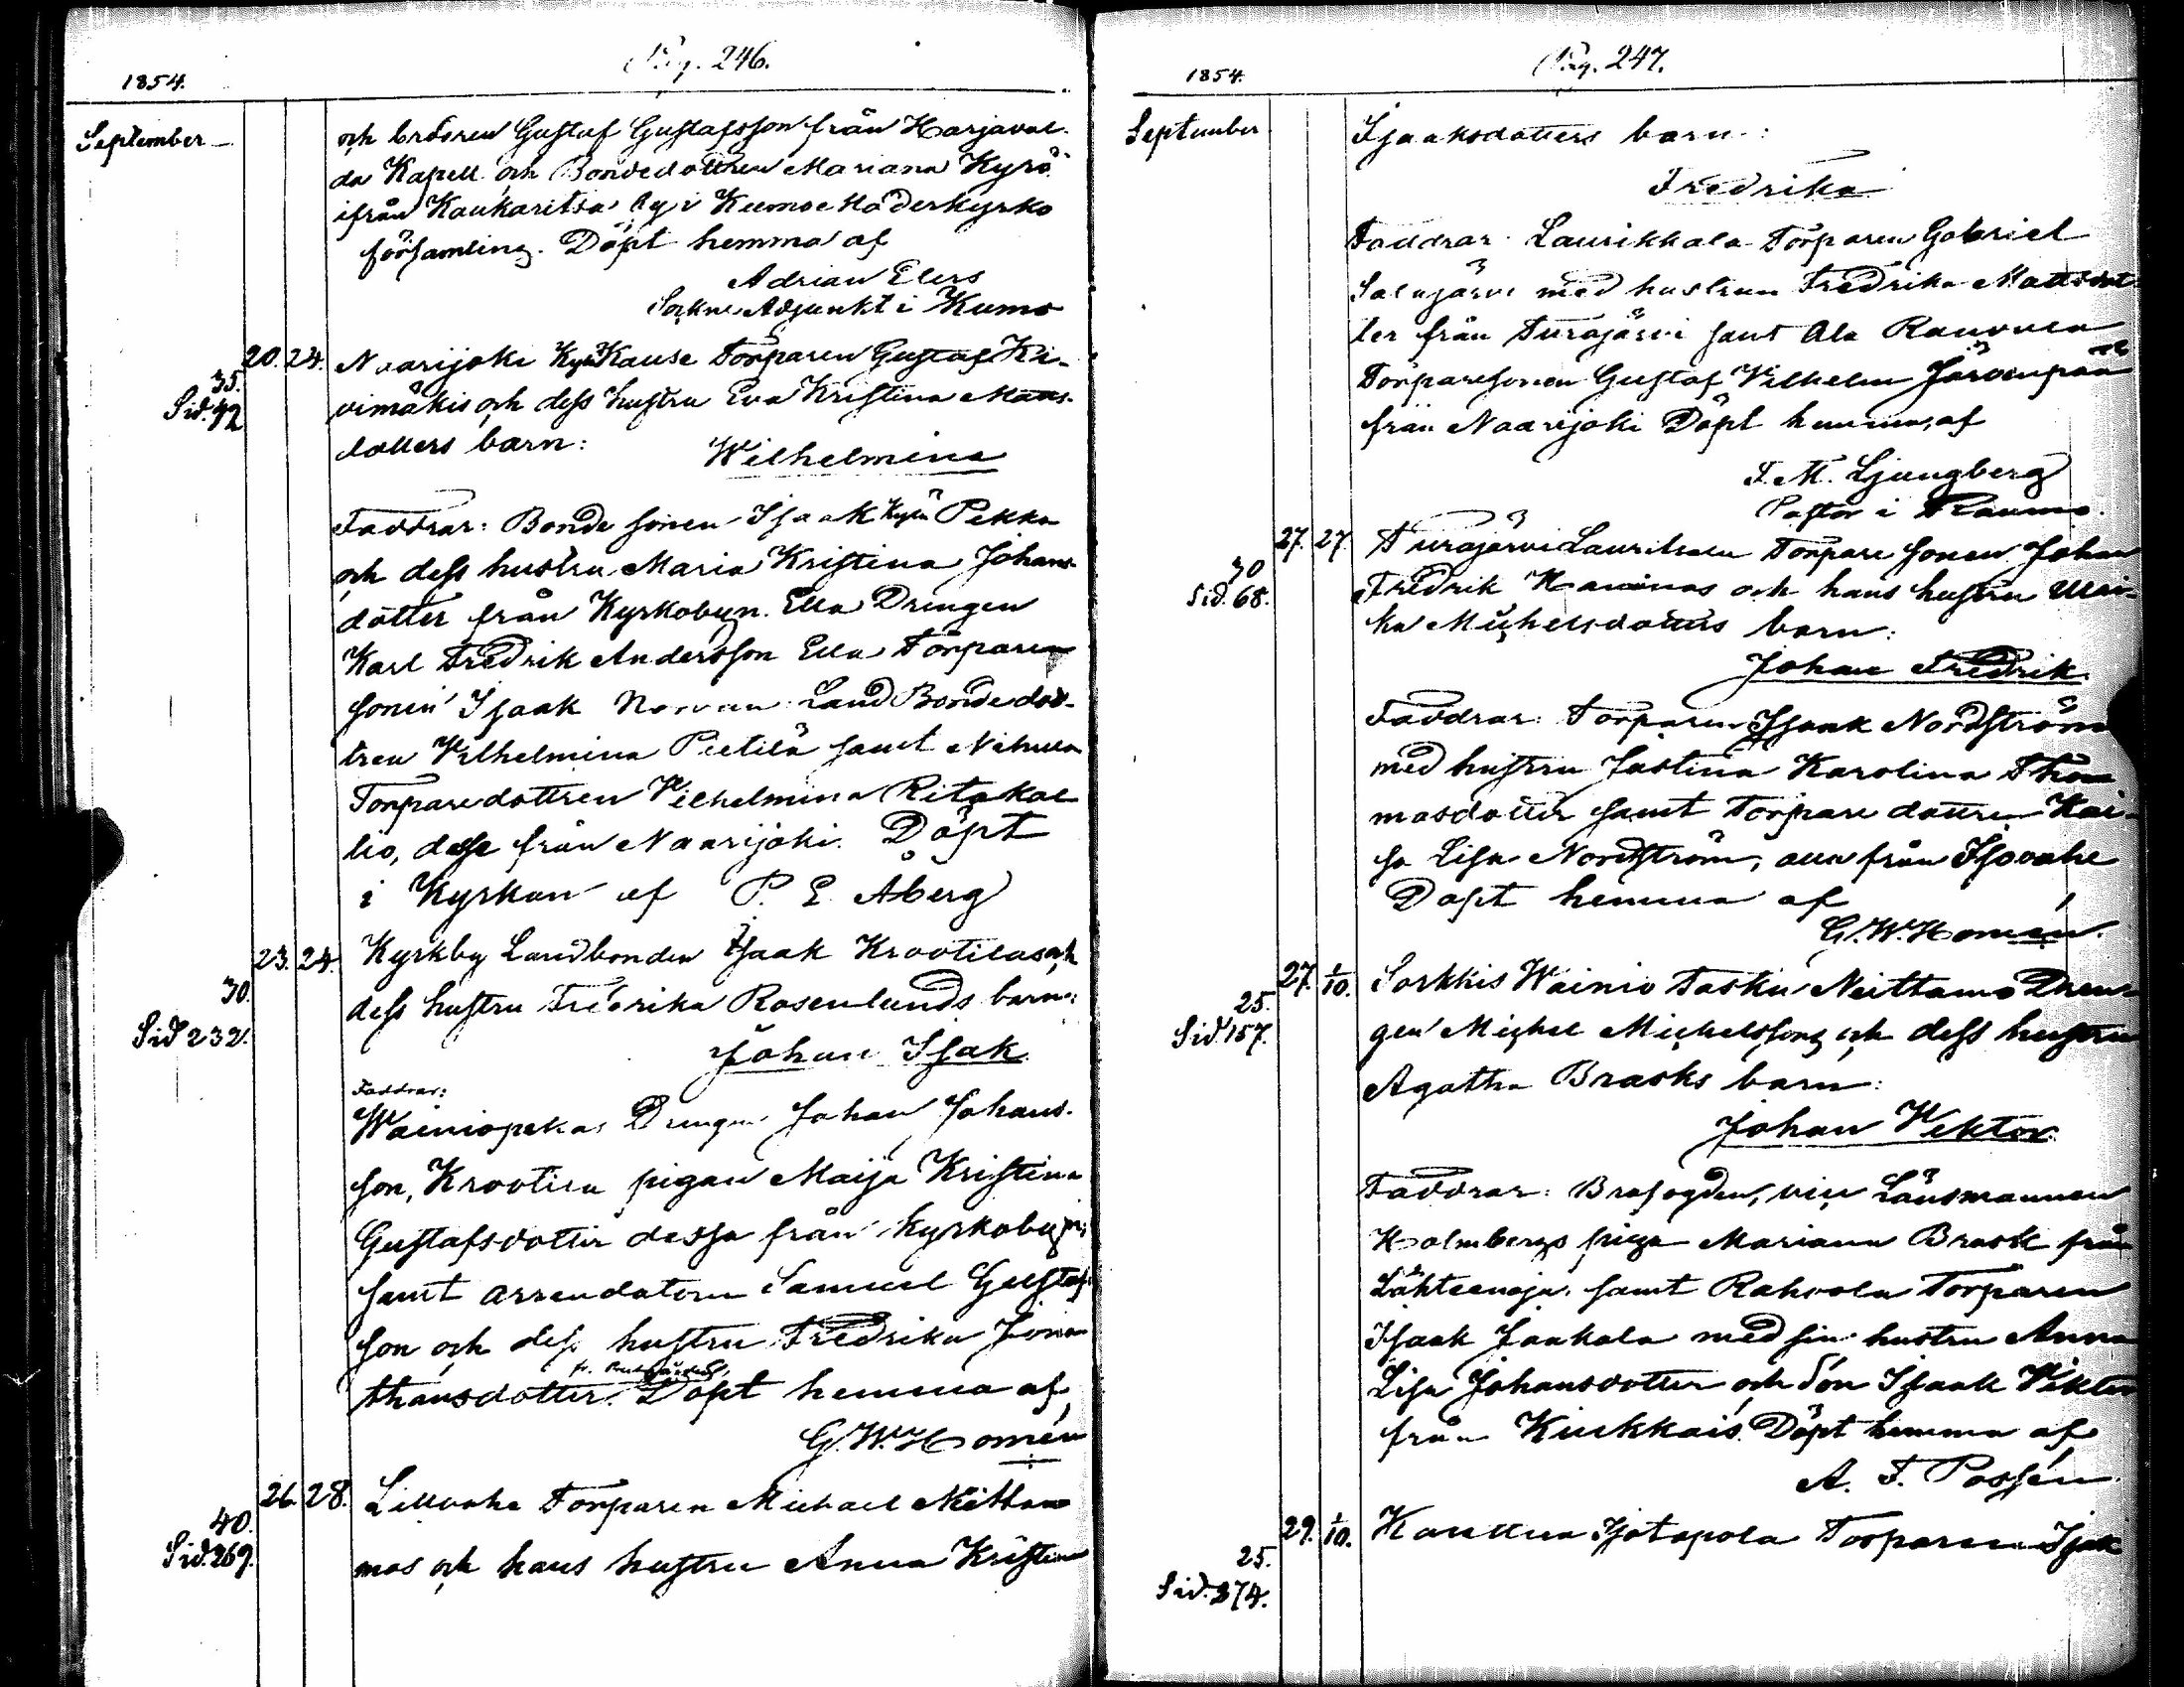 Pag. 246.
1854.
September
och brodren Gustaf Gustafsson från Harjaval-
da Kapell och Bondedottren Mariana Kyrö
ifrån Kaukaritsa by i Kumo Moderkyrko
församling. Döpt hemma af
Adrian Elers
Sockne Adjunkt i Kumo
20. 24. Naarijoki Kause Torparen Gustaf Ki-
35.
vimäkis och dess hustru Eva Kristina Matts-
Sid. 42
dotters barn:
Wilhelmina
Faddrar: Bonde sonen Isaak Pekka
och dess hustru Maria Kristina Johans-
dotter från Kyrkobyn. Ella Drengen
Karl Fredrik Andersson Ella Torpare
sonen Isaak Land Bonde dot-
tren Vilhelmina Pietilä samt
Torparedottren Vilhelmina Ritakal
lio, desse från Naarijoki. Döpt
i Kyrkan af P. E. Åberg
23. 24. Kyrkby Landbonden Isaak Krootilas och
30.
dess hustru Fredrika Rosenlunds barn:
Sid 232.
Johan Isak
Faddrar:
Wainiopekas Drengen Johan Johans-
son, Krootila pigan Maija Kristina
Gustafsdotter dessa från Kyrkobyn;
samt arrendatorn Samuel Gustaf
son och dess hustru Fredrika Jona
thansdotter. Döpt hemma af
G. W. Homén
26. 28. Lillvahe Torparen Michael Neitta
40.
mos och hans hustru Anna Kristina
Sid. 269.
Pag. 247.
1854.
September
Isaaksdotters barn:
Fredrika
Faddrar Laurikkala Torparen Gabriel
Salajärvi med hustrun Fredrika Mattsdot
ter från Turajärvi samt Ala Rauvola
Torparesonen Gustaf Vilhelm Järvenpää
från Naarijoki Döpt hemma, af
F. M. Ljungberg
Pastor i Raumo.
27. 27. Turajärvi Lauritsala Torpare sonen Johan
30
Fredrik Haninas och hans hustru Ulri-
Sid. 68.
ka Michelsdotters barn:
Johan Fredrik
Faddrar: Torparen Isaak Nordström
med hustru Justina Karolina Tho
masdotter samt Torpare dottren Kai-
sa Lisa Nordström, alla från Isovahe
Döpt hemma af
G. W. Homén.
27. 1/10. Sorkkis Wainio Tasku Neittamo Dren-
25.
gen Michel Michelssons och dess hustru
Sid. 157.
Agatha Brasks barn:
Johan Viktor
Faddrar: Brofogden, vice Länsmannen
Holmbergs piga Mariana Brask från
Lähteenoja, samt Rahvola Torparen
Isaak Jaakola med sin hustru Anna
Lisa Johansdotter och Son Isaak Viktor
från Kiukkais. Döpt hemma af
A. F. Possén
29. 1/10. Kauttua Torparen Isak
25.
Sid. 374.